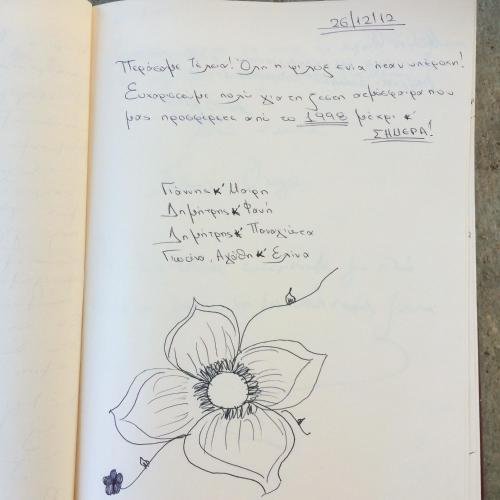 26/12/12
Περάσαμε τέλεια! Όλη η φιλοξενία ήταν υπέροχη!
Ευχαριστούμε πολύ για τη ζεστή ατμόσφαιρα που
μας προσφέρετε από το 1998 μέχρι κ'
ΣΗΜΕΡΑ!
Γιάννης κ' Μαίρη
Δημήτρης κ' Φανή
Δημήτρης κ' Παναγιώτα
Γιωάννα, Αγάθη κ' Ελίνα